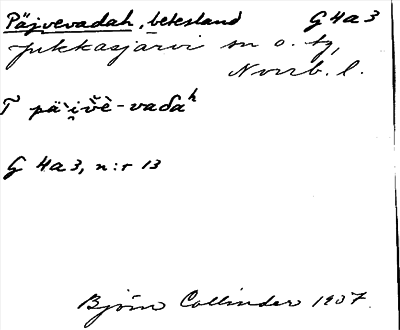 Päjvevadah, betesland G 4a3
Jukkasjärvi sn o. tg,
Norrb. l.
T päi̯vĕ̀-vaδaʰ
G 4a3, n:r 13
Björn Collinder 1937.